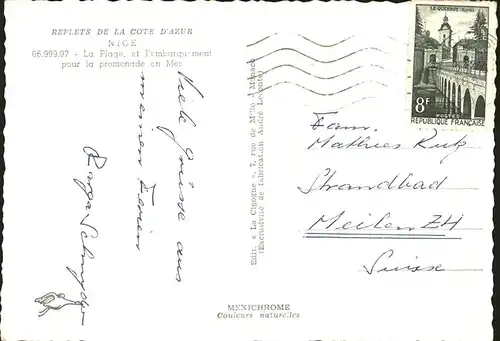 REFLETS DE LA COTE D'AZUR
NICE
06.999.97 - La Plage, et l'embarquement
pour la promenade en Mer
Viele Grüsse aus
meinen Ferien
Edit. « La Cigogne », 7, rue de M'lo - Monaco
(Exclusivité de fabrication André Leconte)
MEXICHROME
Couleurs naturelles
LE QUESNOY - NORD
8F
POSTES
REPUBLIQUE FRANÇAISE
Fam.
Mathies
Strandbad
Meilen ZH
Suisse